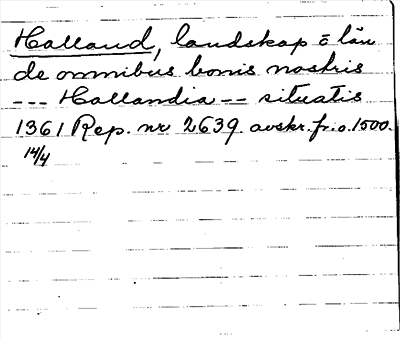 Halland, landskap o län
de omnibus bonis nostris
--- Hallandia -- situatis
1361 Rep. nr 2639 avskr. fr. o. 1500.
14/4